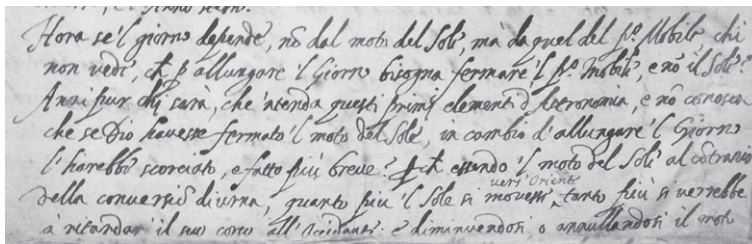 Hora se'l giorno depende, nõ dal moto del Sole, mà da quel del pº. Mobile chi
non vede, cħ p allungare 'l Giorno bisogna fermare 'l pº. mobile, e nõ il Sole?
Anzi pur chi sarà, che 'ntenda questi primi elementi d'Astronomia, e nõ conosca
che se Dio havesse fermato 'l moto del Sole, in cambio d'allungare 'l Giorno
l'harebbe scorciato, e fatto più breve? cħ essendo 'l moto del Sole al cõtrario
della conversiõ diurna, quanto più 'l Sole si movesse vers'Oriente tanto più si verrebbe
à ritardar il suo corso all'Occidente: e diminuendosi, o annullandosi il moto